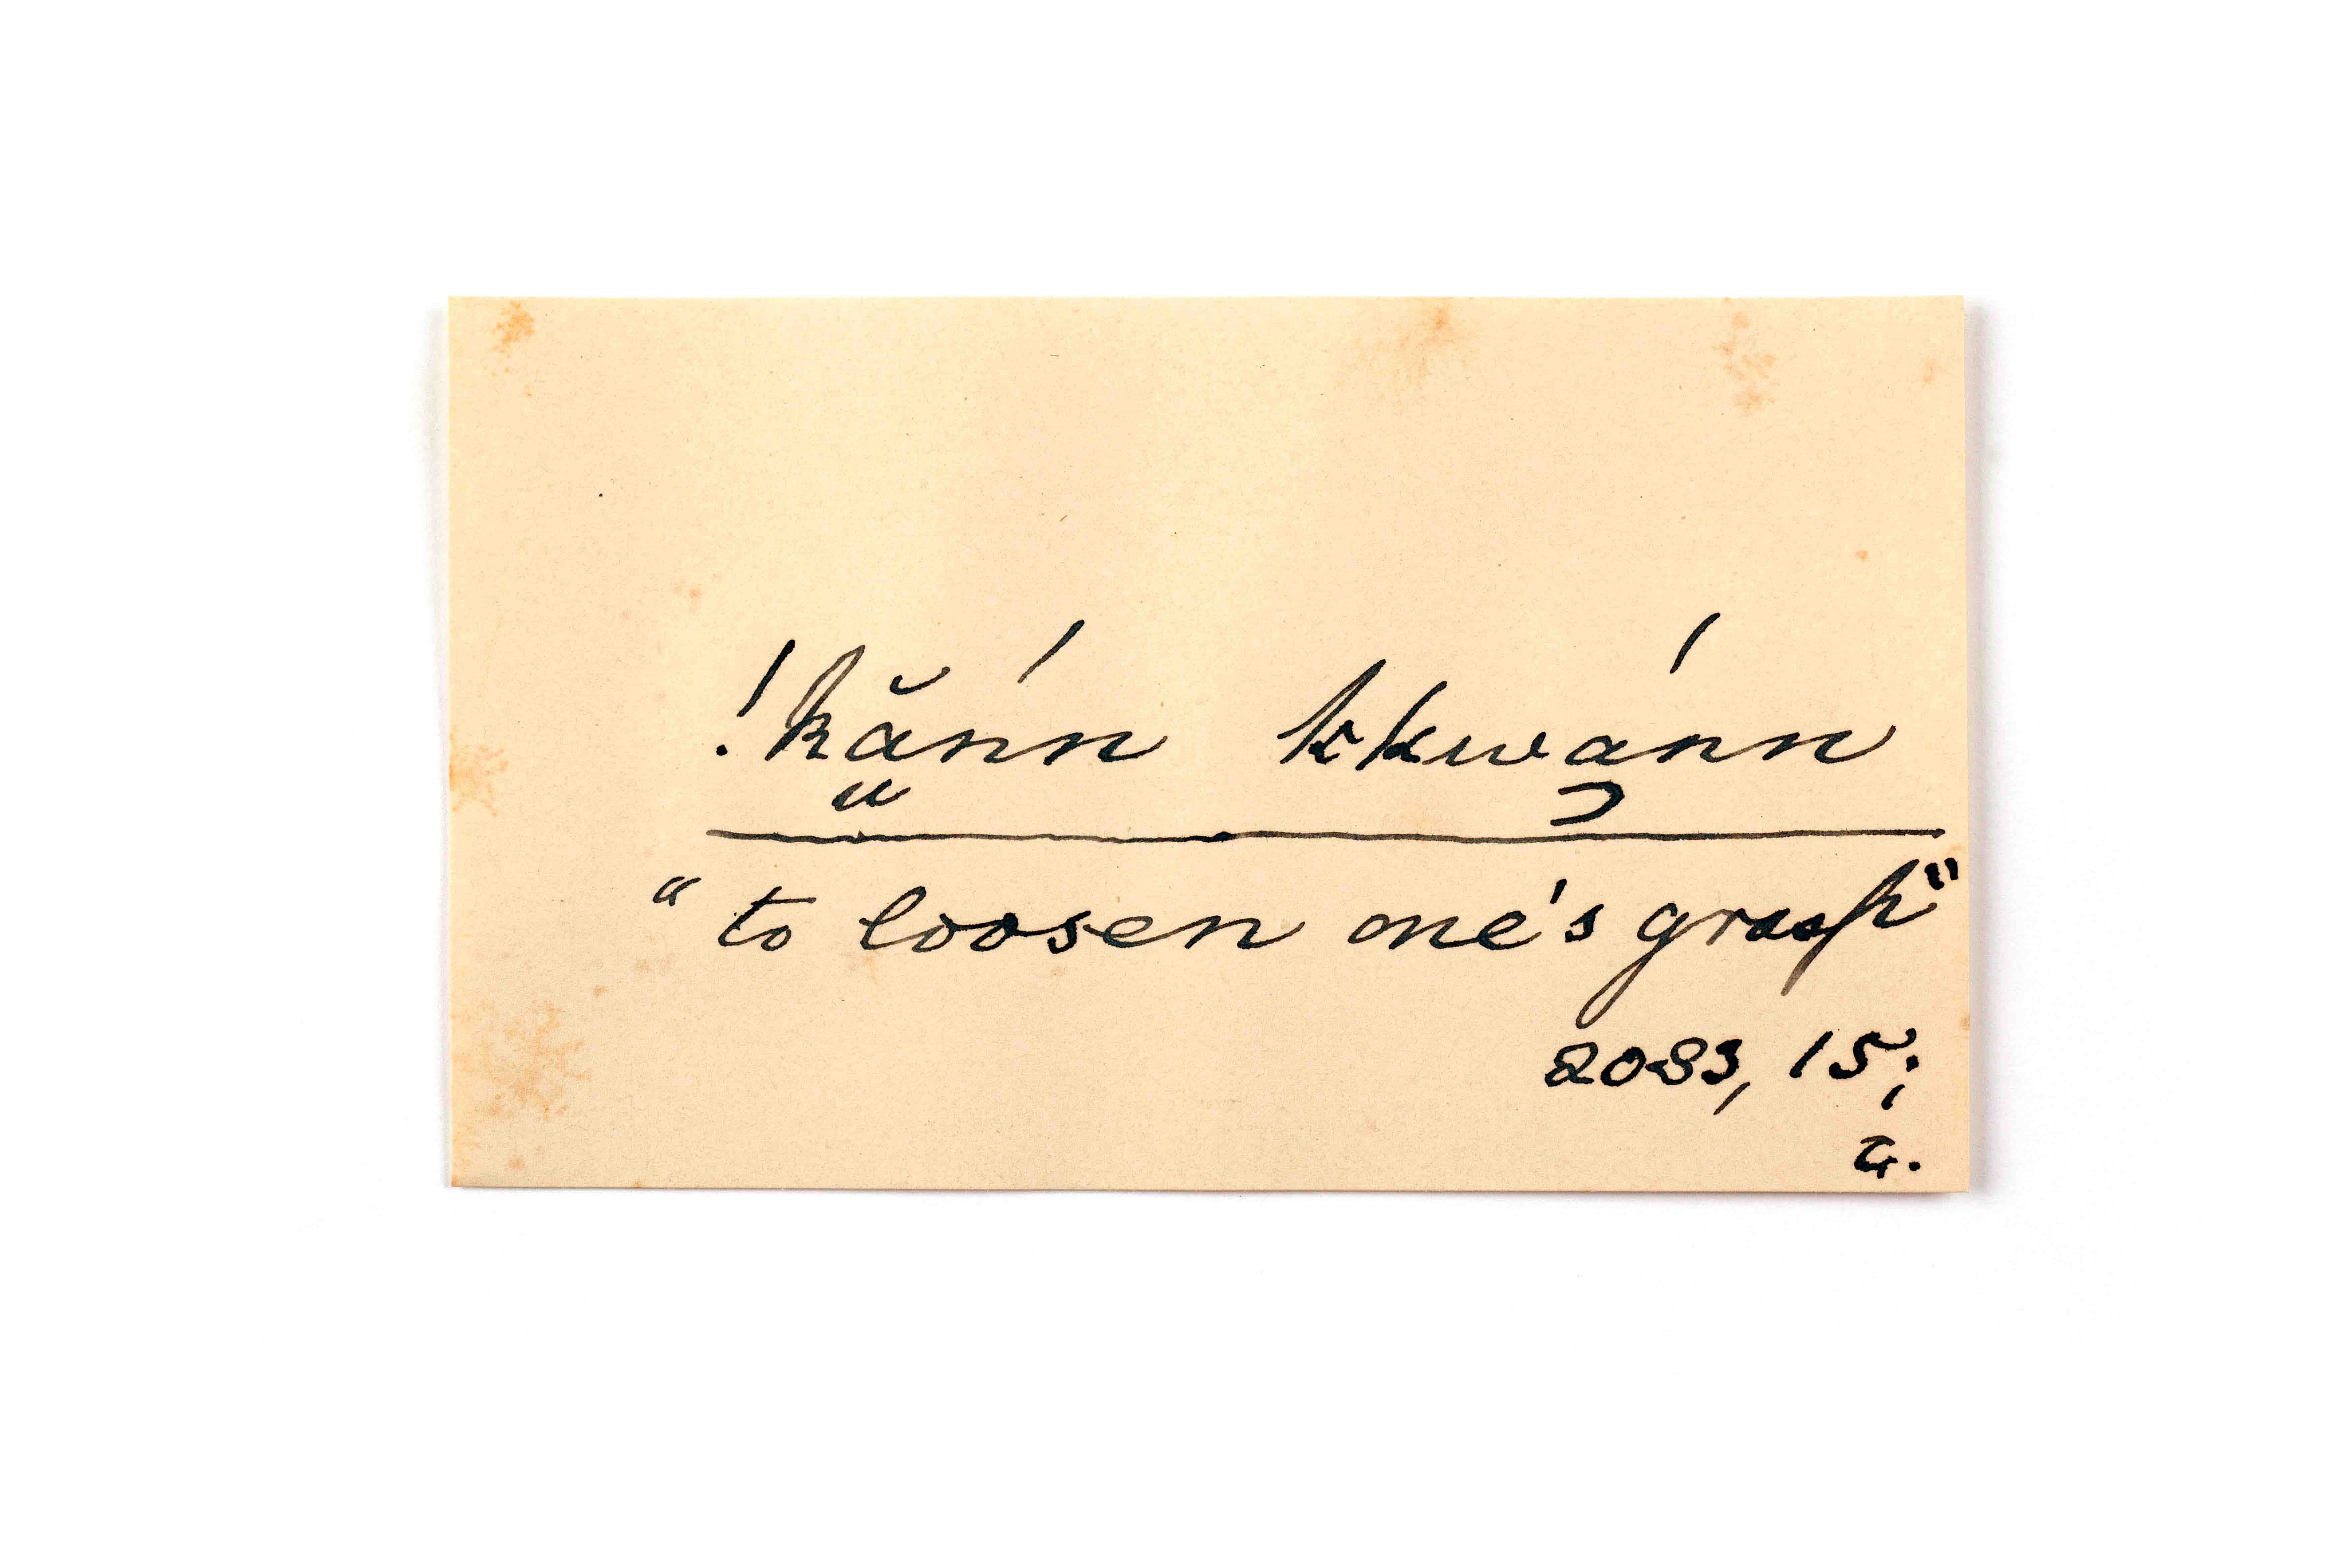 !kă̤ńn kkwá̹nn
"to loosen one's grasp"
2083, 15;